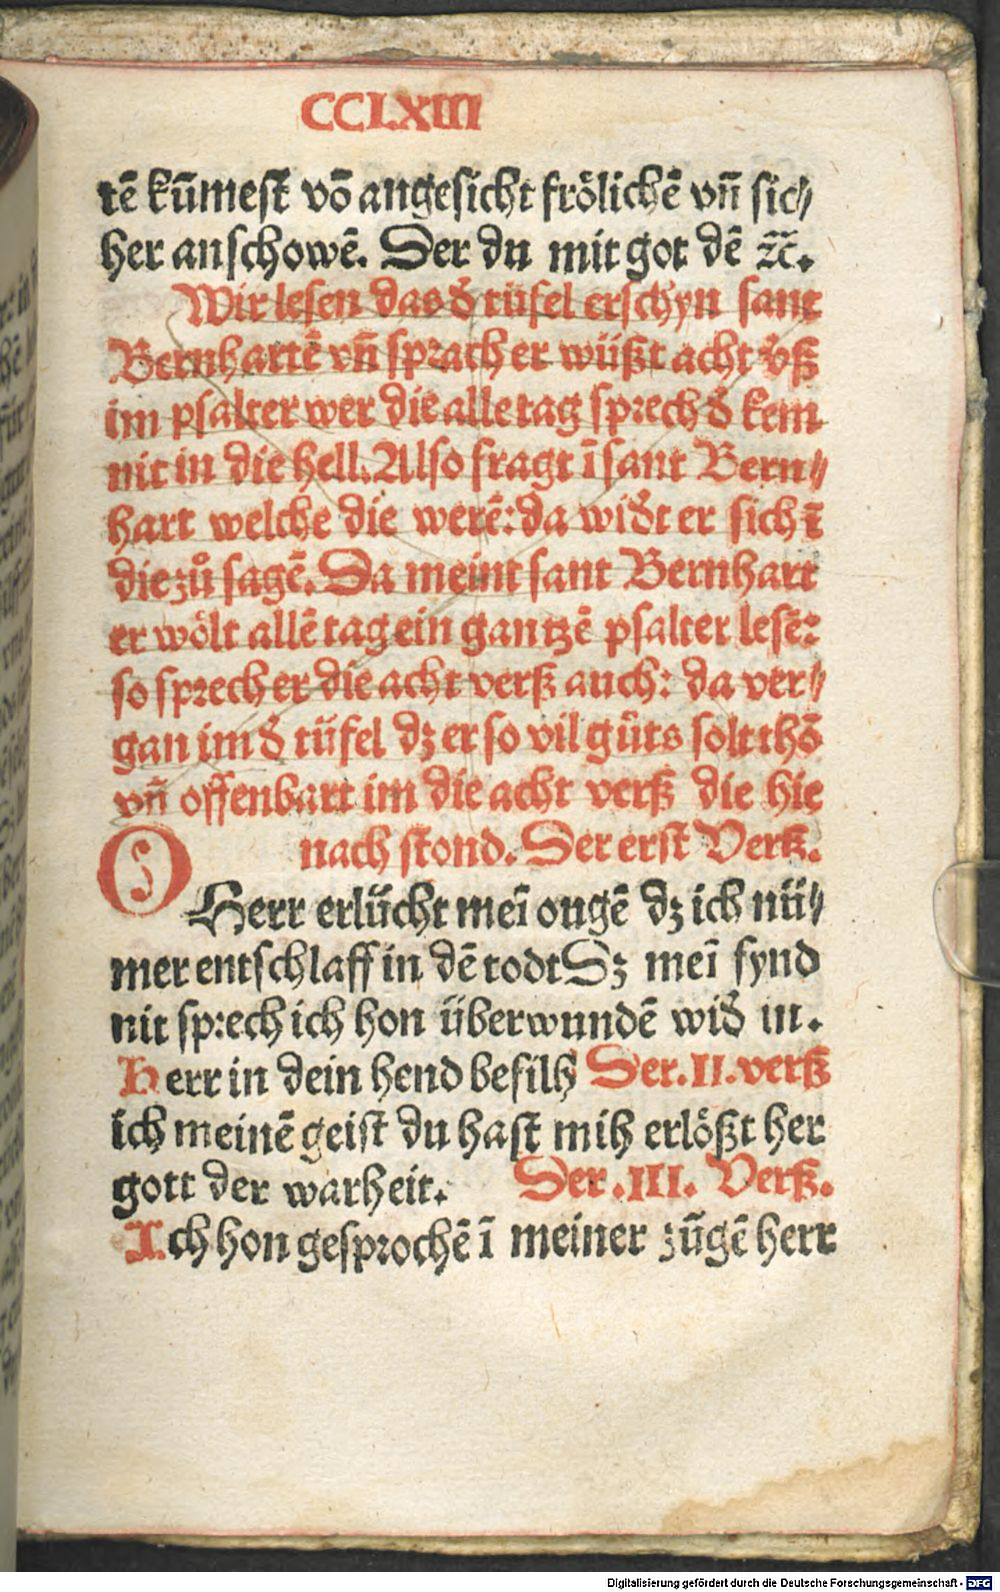 CCLXIII
tē kūmest vō angesicht frölichē vñ sic⸗
her anschowē. Der du mit got dē ⁊c̄.
Wir lesen das d̓ tüfel erschyn sant
Bernhartē vñ sprach er wüßt acht v̓ß
im psalter wer die alle tag sprech d̓ kem
nit in die hell. Also fragt ī sant Bern⸗
hart welche die werē: da wid̓t er sich ī
die zů sagē. Da meint sant Bernhart
er wölt allē tag ein gantzē psalter lesē:
so sprech er die acht verß auch: da ver⸗
gan im d̓ tüfel dz er so vil gůts solt thō
vñ offenbart im die acht verß die hie
nach stond. Der erst Verß.
O Herr erlücht meī ougē dz ich nü⸗
mer entschlaff in dē todt Dz meī fynd
nit sprech ich hon überwundē wid̓ in.
Herr in dein hend befilh Der .II. verß
ich meinē geist du hast mih erlößt her
gott der warheit. Der .III. Verß.
Ich hon gesprochē ī meiner zūgē herr
Digitalisierung gefördert durch die Deutsche Forschungsgemeinschaft - DFG